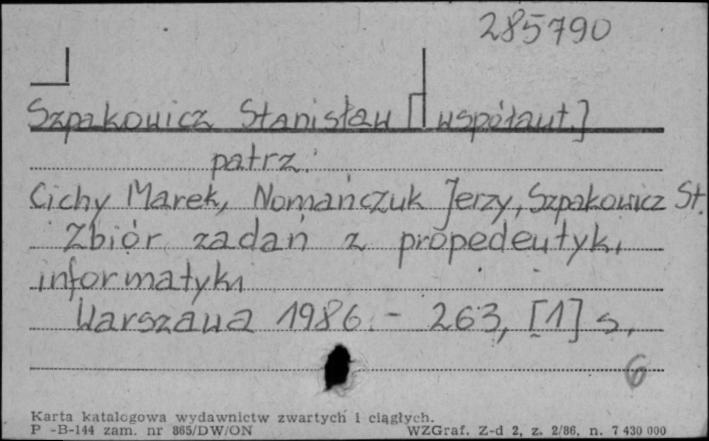 285790
Szpakowicz Stanisław [współaut.]
patrz:
Cichy Marek, Nomańczuk Jerzy, Szpakowicz St.
Zbiór zadań z propedeutyki
informatyki
Warszawa 1986. - 263, [1] s.
6
Karta katalogowa wydawnictw zwartych i ciągłych.
P -B-144 zam. nr 865/DW/ON WZGraf. Z-d 2, z. 2/86, n. 7 430 000